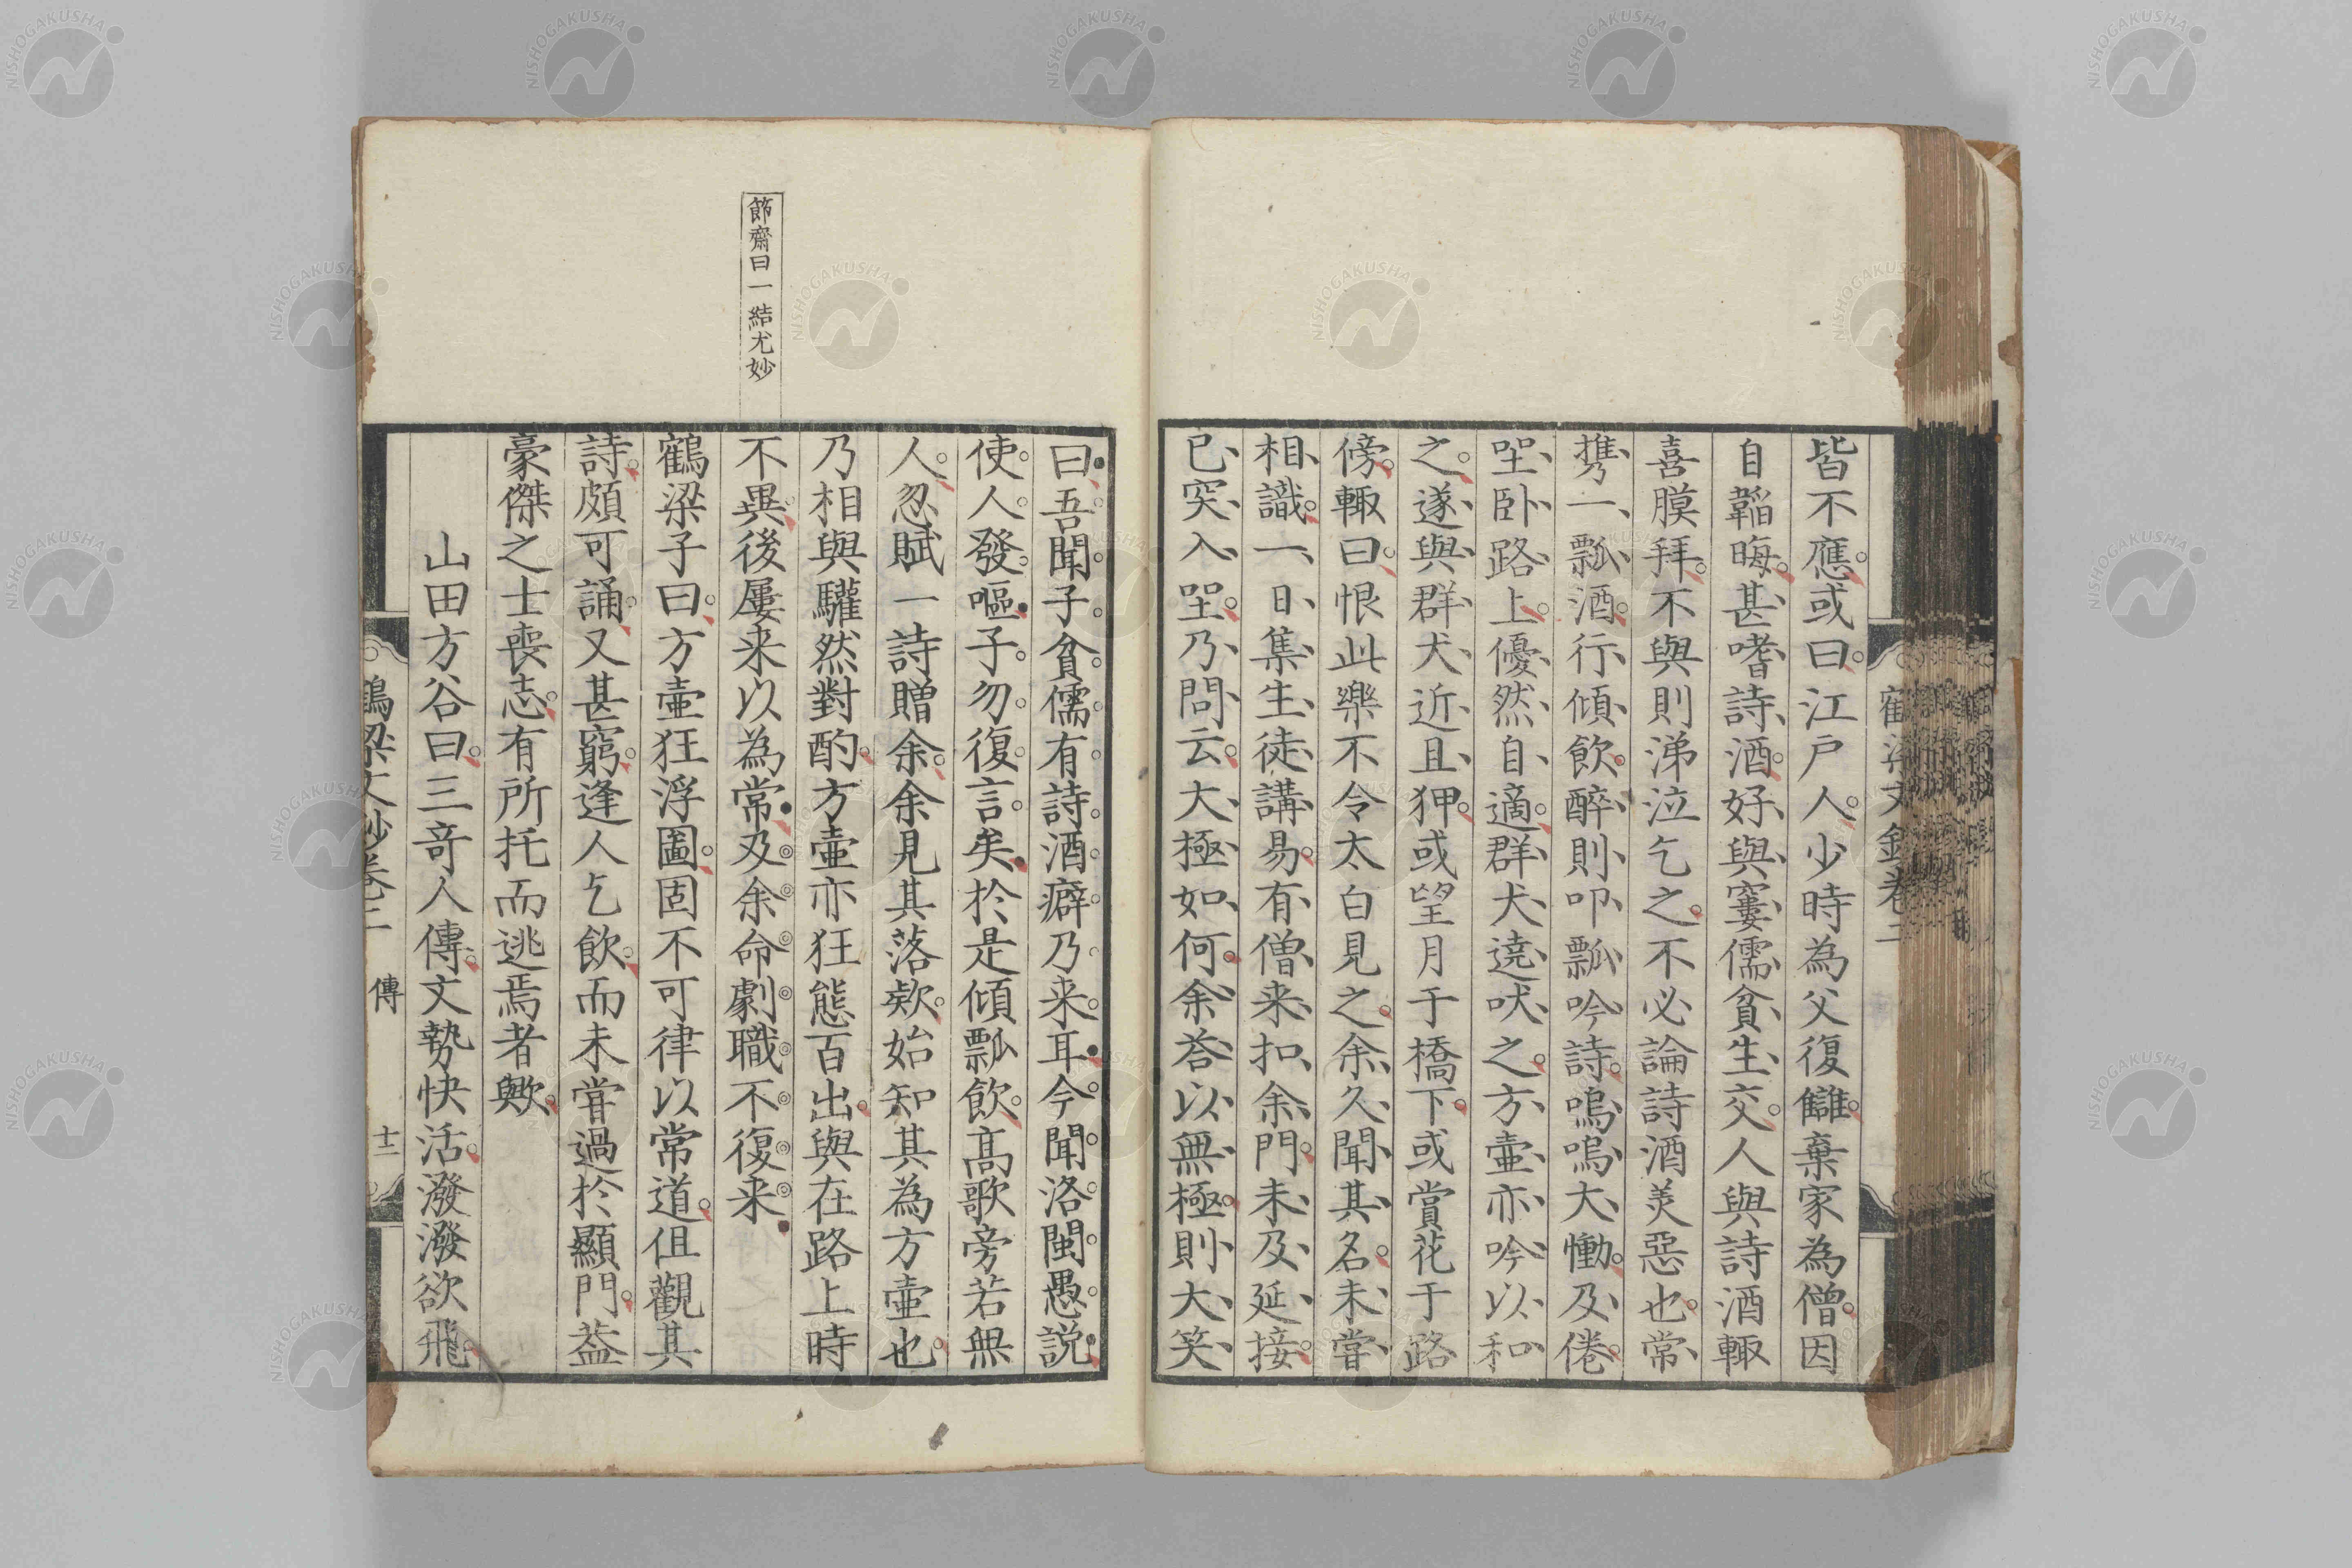 皆不應或曰江戶人少時為父復讎棄家為僧因
自韜晦甚嗜詩酒好與窶儒貧生交人與詩酒輙
喜膜拜不與則涕泣乞之不必論詩酒美惡也常
携一瓢酒行傾飲醉則叩瓢吟詩嗚嗚大慟及倦
坐卧路上優然自適群犬遶吠之方壺亦吟以和
之遂與群犬近且狎或望月于橋下或賞花于路
傍輙曰恨此樂不令太白見之余久聞其名未嘗
相識一日集生徒講易有僧来扣余門未及延接
已突入坐乃問云大極如何余荅以無極則大笑
節齋曰一結尤妙
曰吾聞子貧儒有詩酒癖乃来耳今聞洛閩愚説
使人發嘔子勿復言矣於是傾瓢飲高歌旁若無
人忽賦一詩贈余余見其落欵始知其為方壺也
乃相與驩然對酌方壺亦狂態百出與在路上時
不異後屢来以為常及余命劇職不復来
鶴梁子曰方壺狂浮圖固不可律以常道但觀其
詩頗可誦又甚窮逢人乞飲而未嘗過於顯門葢
豪傑之士喪志有所托而逃焉者歟
山田方谷曰三奇人傳文勢快活潑潑欲飛
鶴梁文鈔卷二 傳 十二
NISHOGAKUSHA